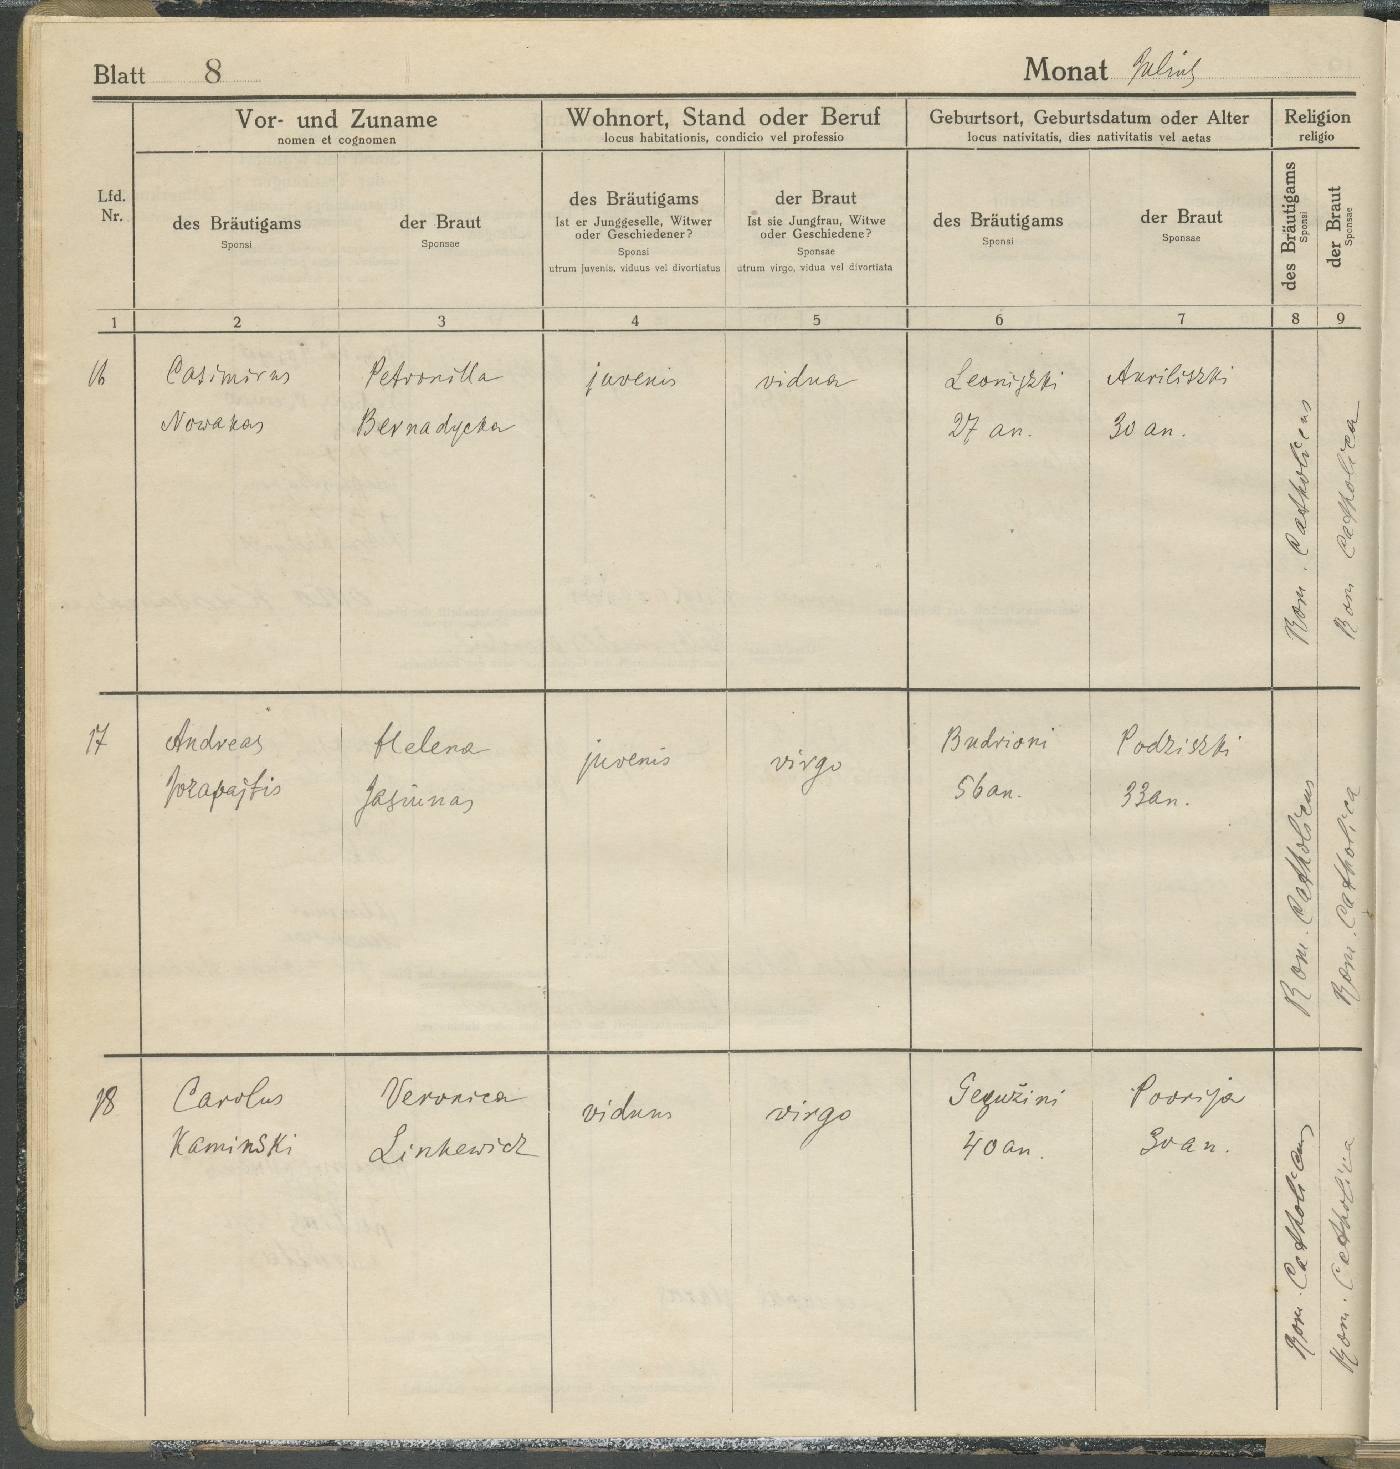 Blatt 8
Monat Julius
Vor- und Zuname
nomen et cognomen
Wohnort, Stand oder Beruf
locus habitationis, condicio vel professio
Geburtsort, Geburtsdatum oder Alter
locus nativitatis, dies nativitatis vel aetas
Religion
religio
Lfd.
Nr.
des Bräutigams
Sponsi
der Braut
Sponsae
des Bräutigams
Ist er Junggeselle, Witwer
oder Geschiedener?
Sponsi
utrum juvenis, viduus vel divortiatus
der Braut
Ist sie Jungfrau, Witwe
oder Geschiedene?
Sponsae
utrum virgo, vidua vel divortiata
des Bräutigams
Sponsi
der Braut
Sponsae
des Bräutigams
Sponsi
der Braut
Sponsae
1 2 3 4 5 6 7 8 9
16
Casimirus
Nowakas
Petronilla
Bernadycka
juvenis
vidua
Leoniszki
27 an.
Auriliszki
30 an.
Rom. Catholicus
Rom Catholica
17
Andreas
Jozapajtis
Helena
Jasiunas
juvenis
virgo
Budrioni
56 an.
Podziszki
33 an.
Rom. Catholicus
Rom. Catholica
18
Carolus
Kaminski
Veronica
Linkewicz
viduus
virgo
Gegužini
40 an.
Poorija
30 an.
Rom. Catholicus
Rom. Catholica